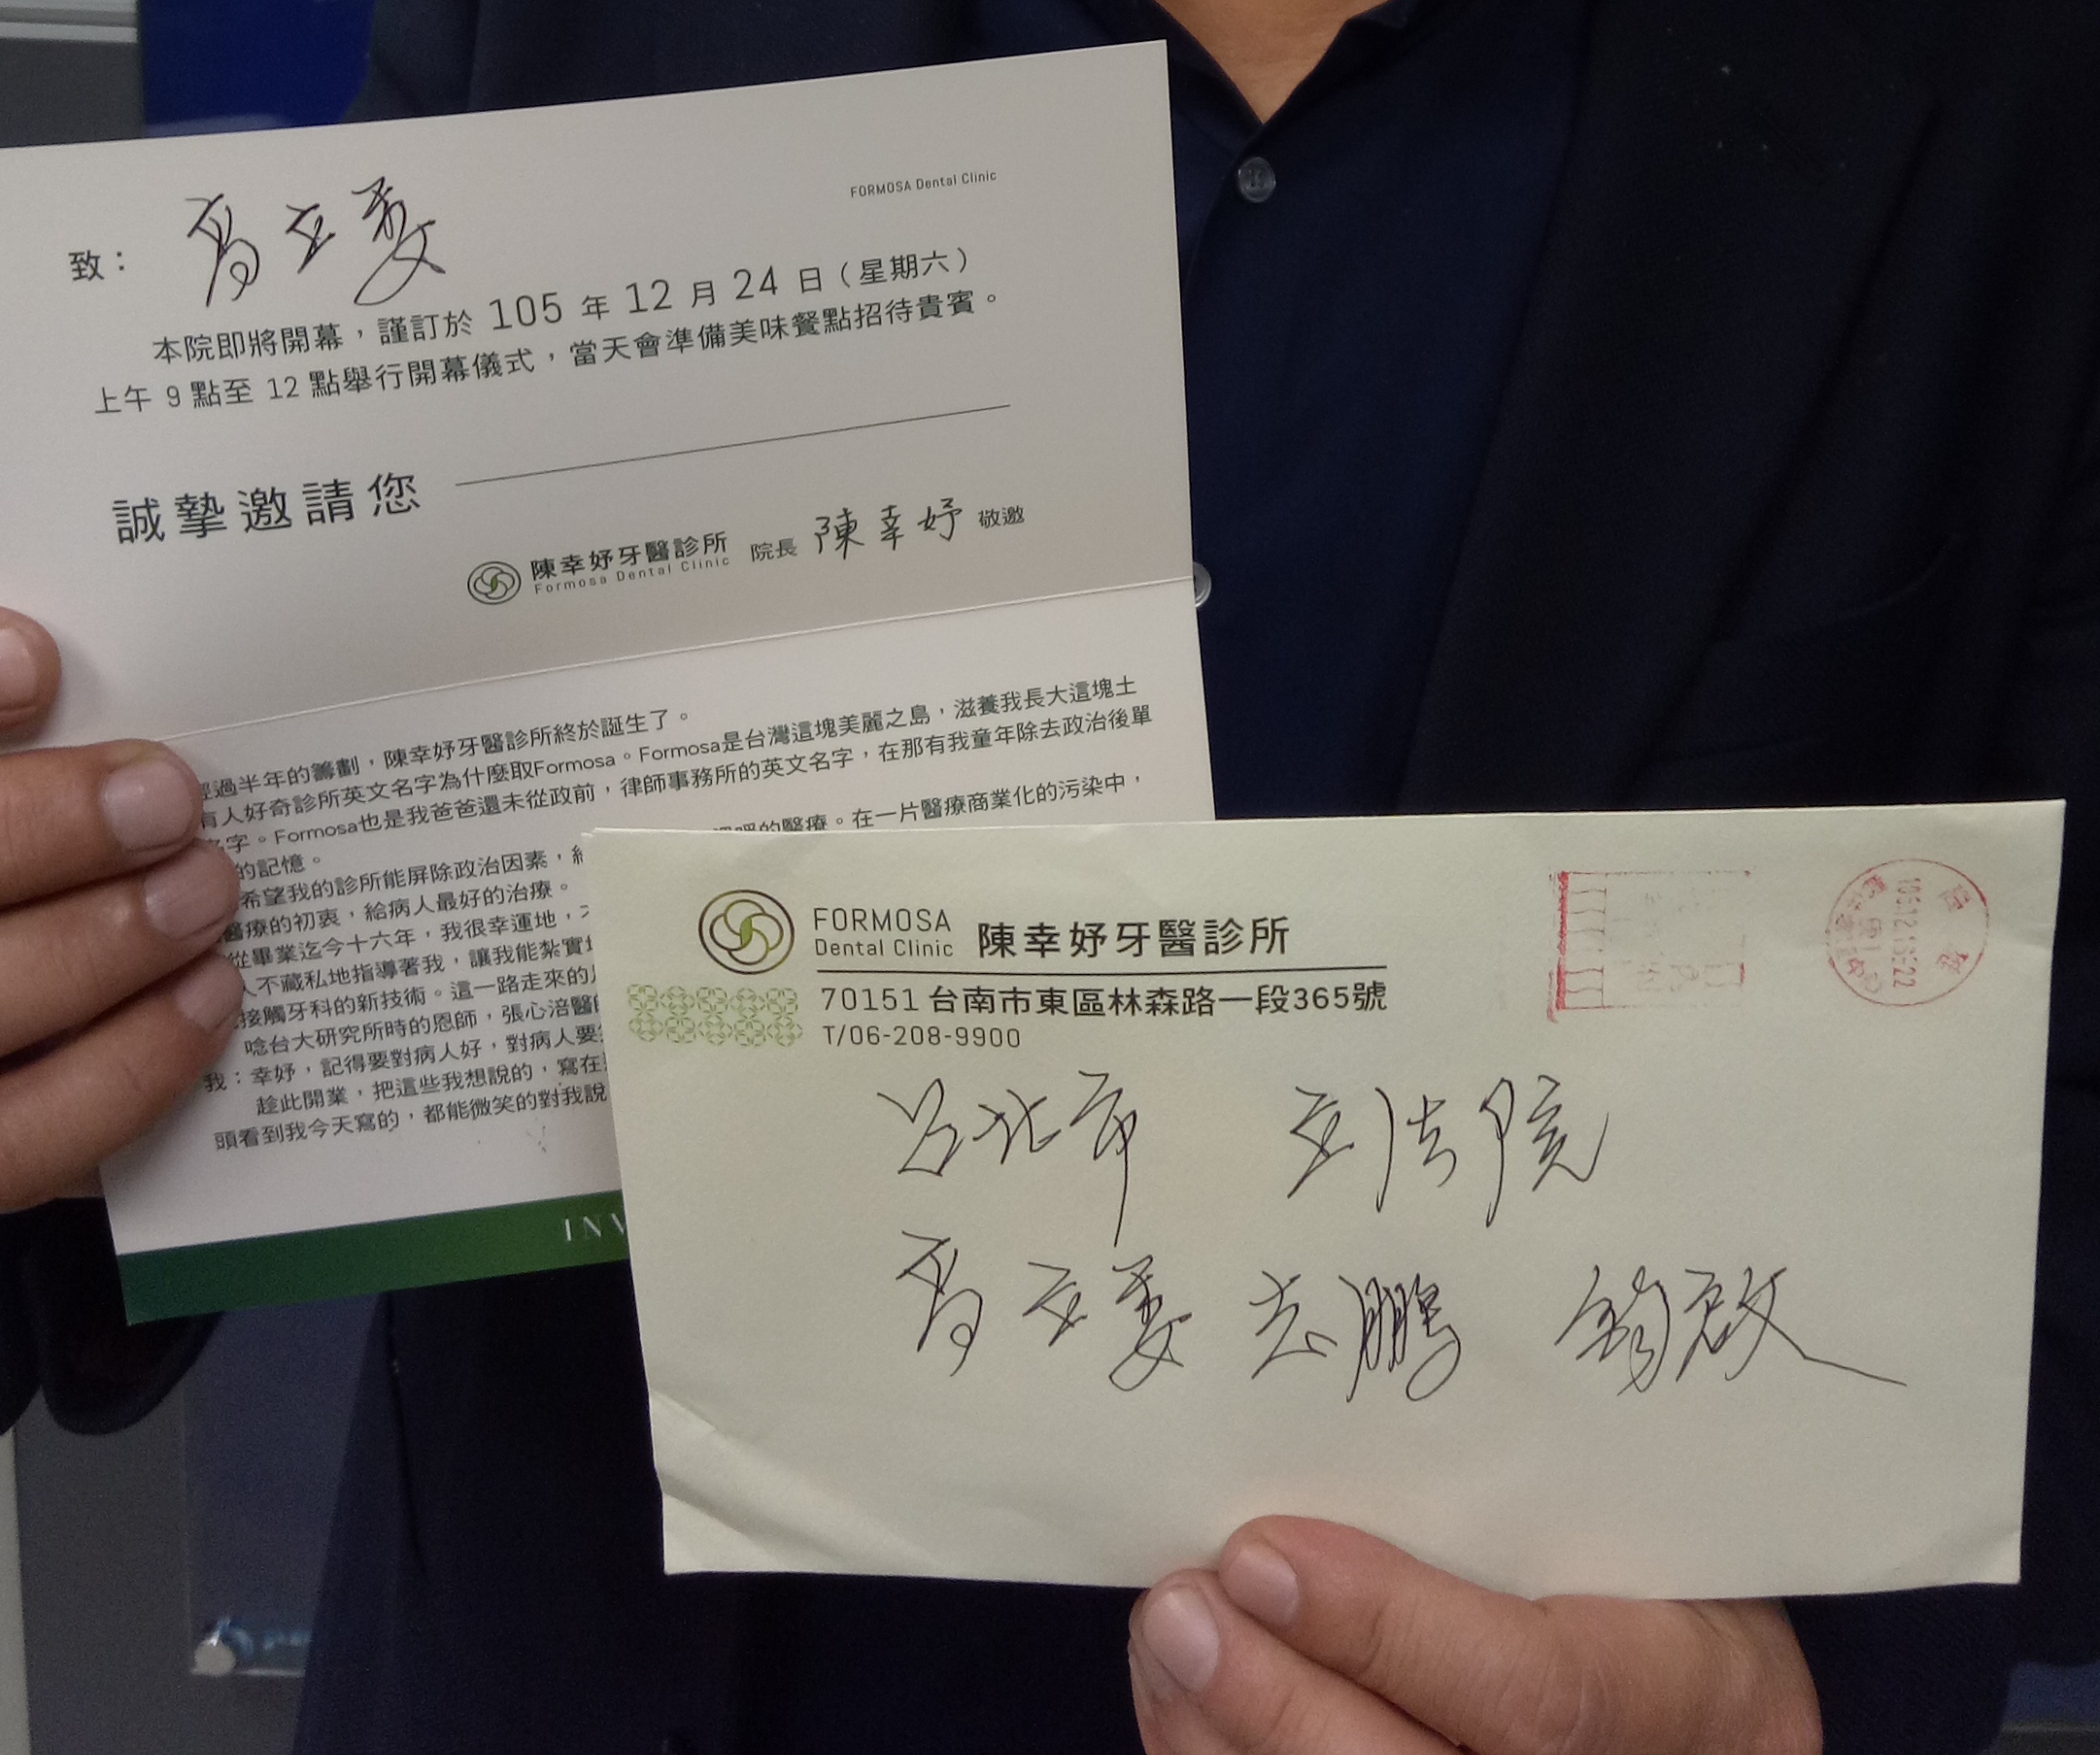 FORMOSA Dental Clinic
致：
高立委
本院即將開幕，謹訂於 105 年 12 月 24 日（星期六）
上午 9 點至 12 點舉行開幕儀式，當天會準備美味餐點招待貴賓。
誠摯邀請您
陳幸妤牙醫診所 院長 陳幸妤 敬邀
Formosa Dental Clinic
經過半年的籌劃，陳幸妤牙醫診所終於誕生了。
有人好奇診所英文名字為什麼取Formosa。Formosa是台灣這塊美麗之島，滋養我長大這塊土
名字。Formosa也是我爸爸還未從政前，律師事務所的英文名字，在那有我童年除去政治後單
的記憶。
希望我的診所能屏除政治因素，
的醫療。在一片醫療商業化的污染中，
醫療的初衷，給病人最好的治療。
從畢業迄今十六年，我很幸運地，
人不藏私地指導著我，讓我能紮實
接觸牙科的新技術。這一路走來的
唸台大研究所時的恩師，張心涪醫
我：幸妤，記得要對病人好，對病人要
趁此開業，把這些我想說的，寫在
頭看到我今天寫的，都能微笑的對我說
INV
FORMOSA
Dental Clinic
陳幸妤牙醫診所
70151 台南市東區林森路一段365號
T/06-208-9900
台北市 立法院
高立委 志鵬 鈞啟